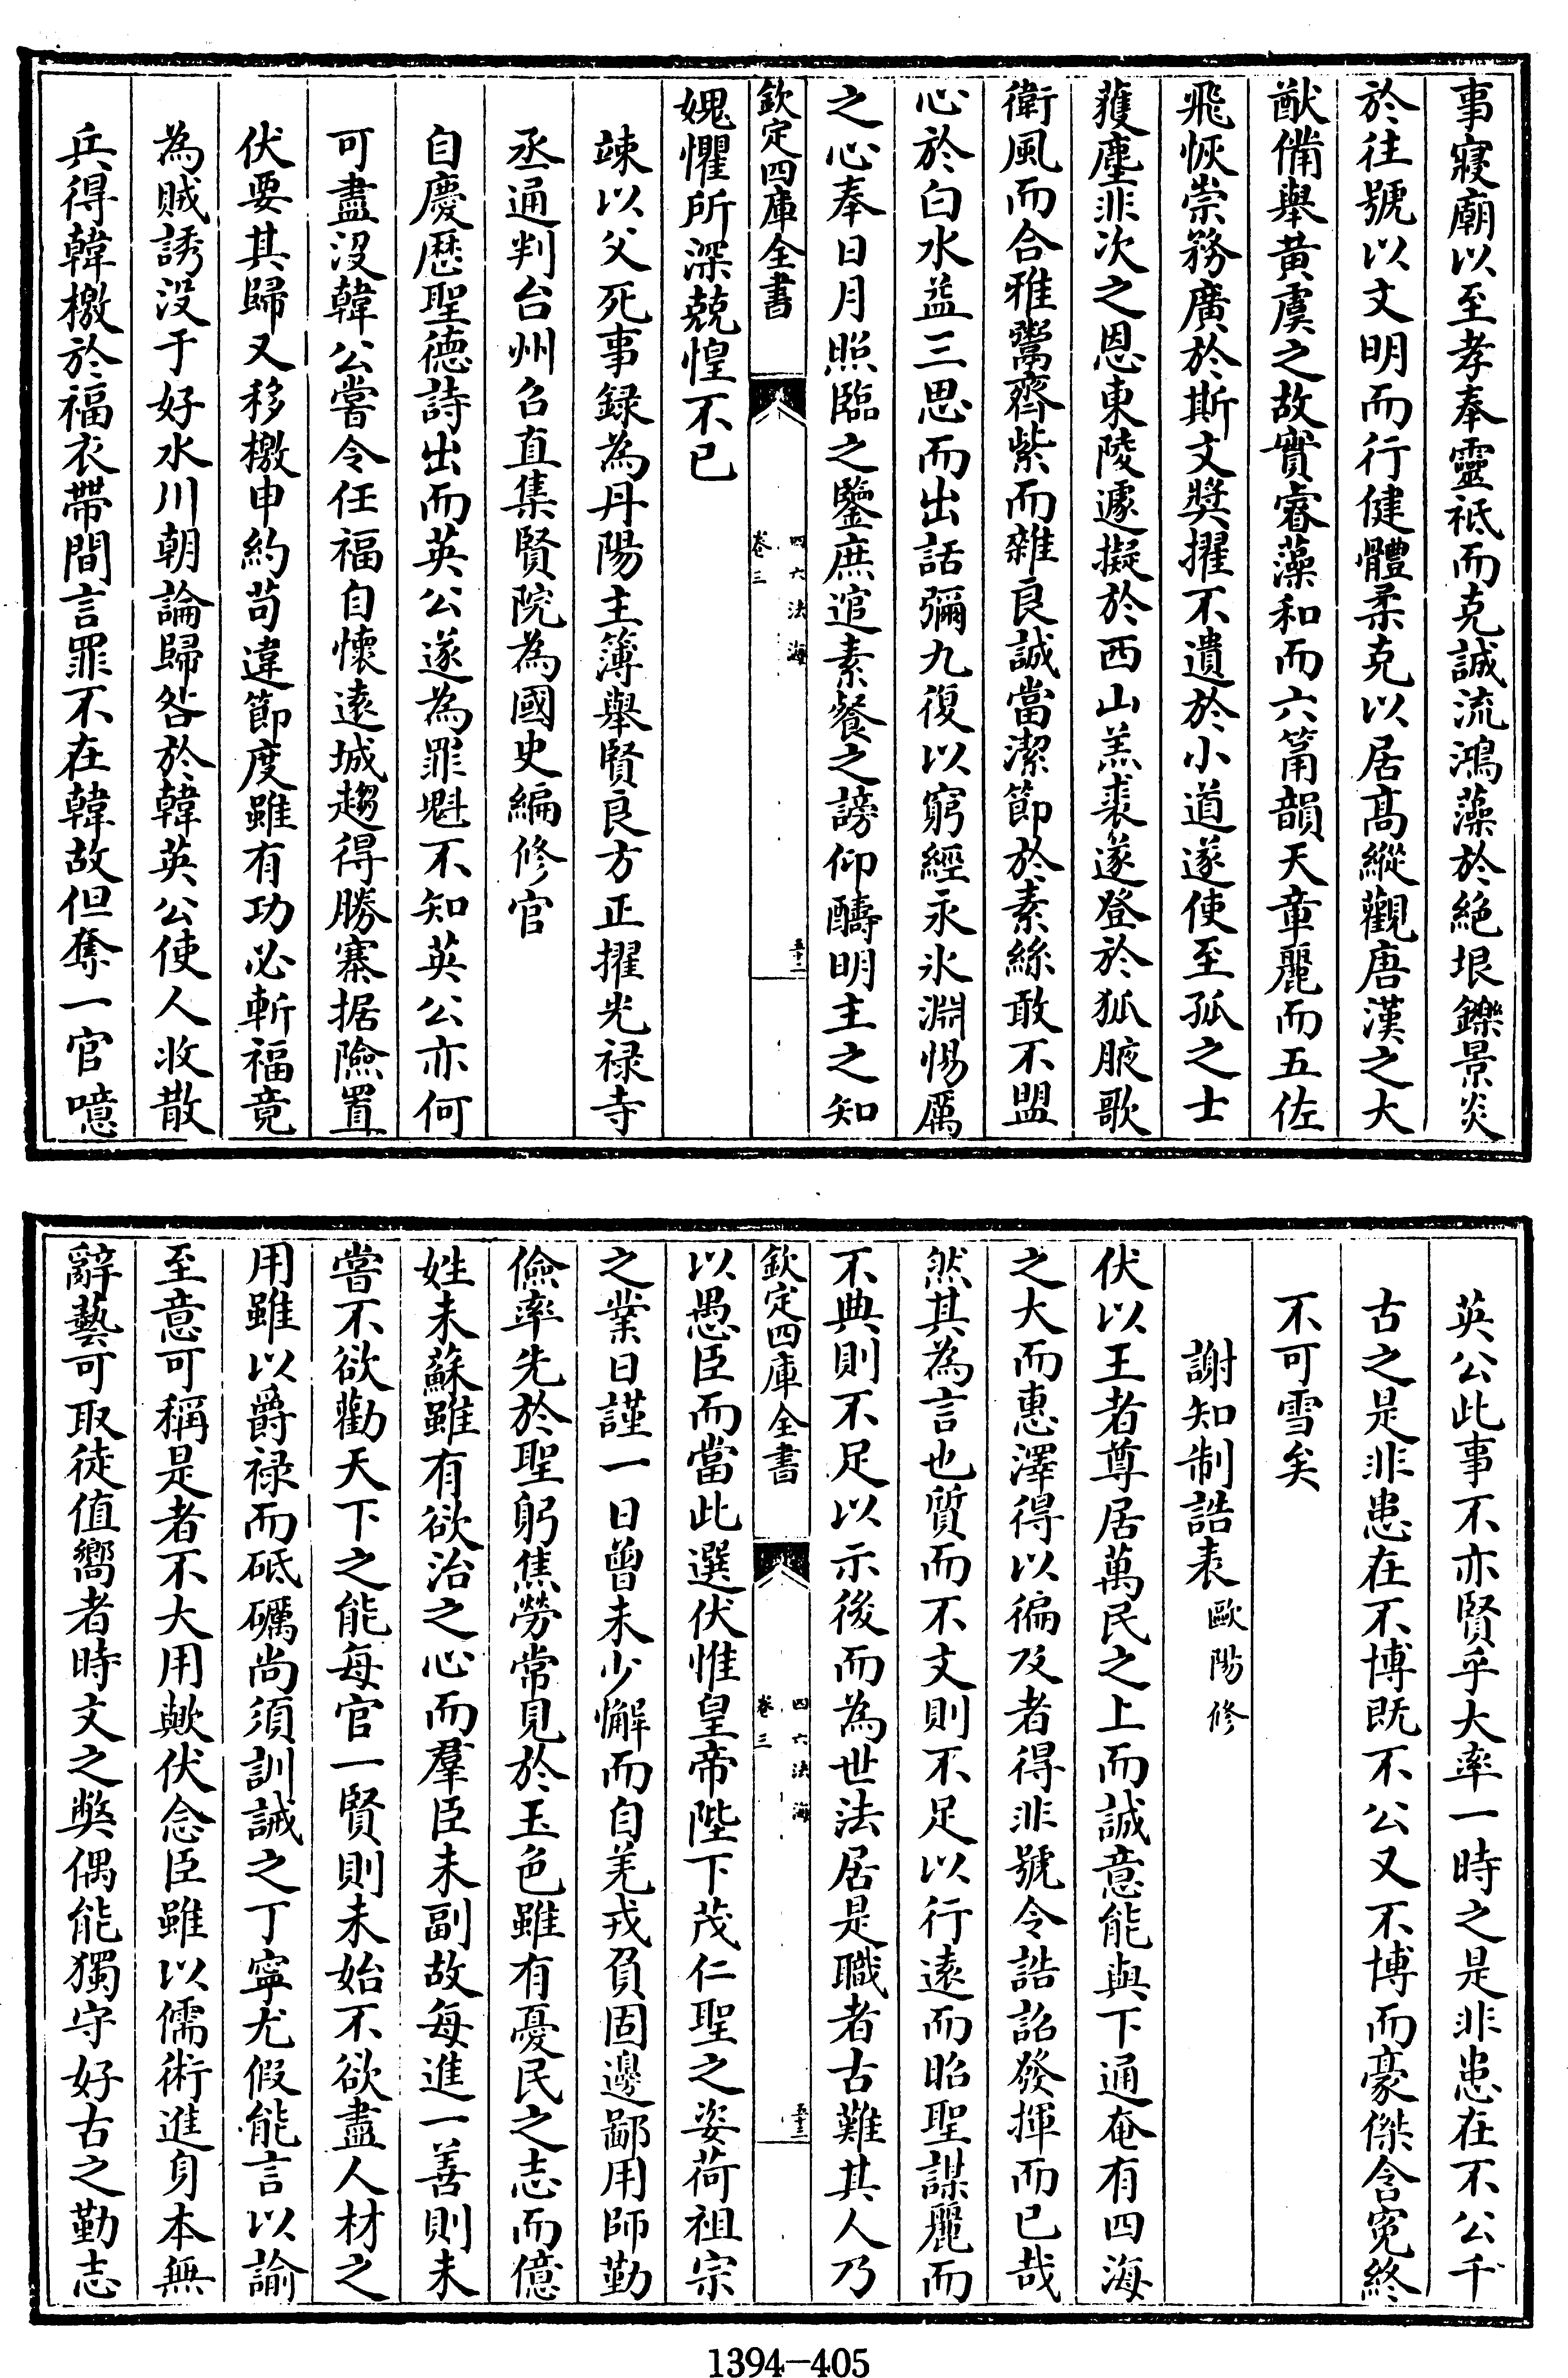 事寢廟以至孝奉靈祇而克誠流鴻藻於絶垠鑠景炎
於往號以文明而行健體柔克以居高縱觀唐漢之大
猷備舉黄虞之故實睿藻和而六甯韻天章麗而五佐
飛恢崇務廣於斯文奬擢不遺於小道遂使至孤之士
蒦塵非次之恩東陵遽擬於西山羔裘遂登於狐腋歌
衛風而合雅鬻齊紫而雜良誠當潔節於素絲敢不盟
心於白水益三思而出話彌九復以窮經永氷淵惕厲
之心奉日月照臨之鑒庶逭素餐之謗仰醻明主之知
欽定四庫全書
四六法海
卷三
五十二
媿懼所深兢惶不已
竦以父死事録為丹陽主簿舉賢良方正擢光禄寺
丞通判台州召直集賢院為國史編修官
自慶歴聖德詩出而英公遂為罪魁不知英公亦何
可盡没韓公嘗令任福自懐逺城趨得勝寨据險置
伏要其歸又移檄申約苟違節度雖有功必斬福竟
為賊誘没于好水川朝論歸咎於韓英公使人收散
兵得韓檄於福衣帶間言罪不在韓故但奪一官噫
英公此事不亦賢乎大率一時之是非患在不公千
古之是非患在不博既不公又不博而豪傑含寃終
不可雪矣
謝知制誥表 歐陽修
伏以王者尊居萬民之上而誠意能與下通奄有四海
之大而惠澤得以徧及者得非號令誥詔發揮而已哉
然其為言也質而不文則不足以行逺而昭聖謀麗而
不典則不足以示後而為世法居是職者古難其人乃
欽定四庫全書
四六法海
卷三
五十三
以愚臣而當此選伏惟皇帝陛下茂仁聖之姿荷祖宗
之業日謹一日曾未少懈而自羌戎負固邊鄙用師勤
儉率先於聖躬焦勞常見於玉色雖有憂民之志而億
姓未蘇雖有欲治之心而羣臣未副故每進一善則未
嘗不欲勸天下之能每官一賢則未始不欲盡人材之
用雖以爵禄而砥礪尚須訓誡之丁寧尤假能言以諭
至意可稱是者不大用歟伏念臣雖以儒術進身本無
辭藝可取徒值嚮者時文之獘偶能獨守好古之勤志
1394-405